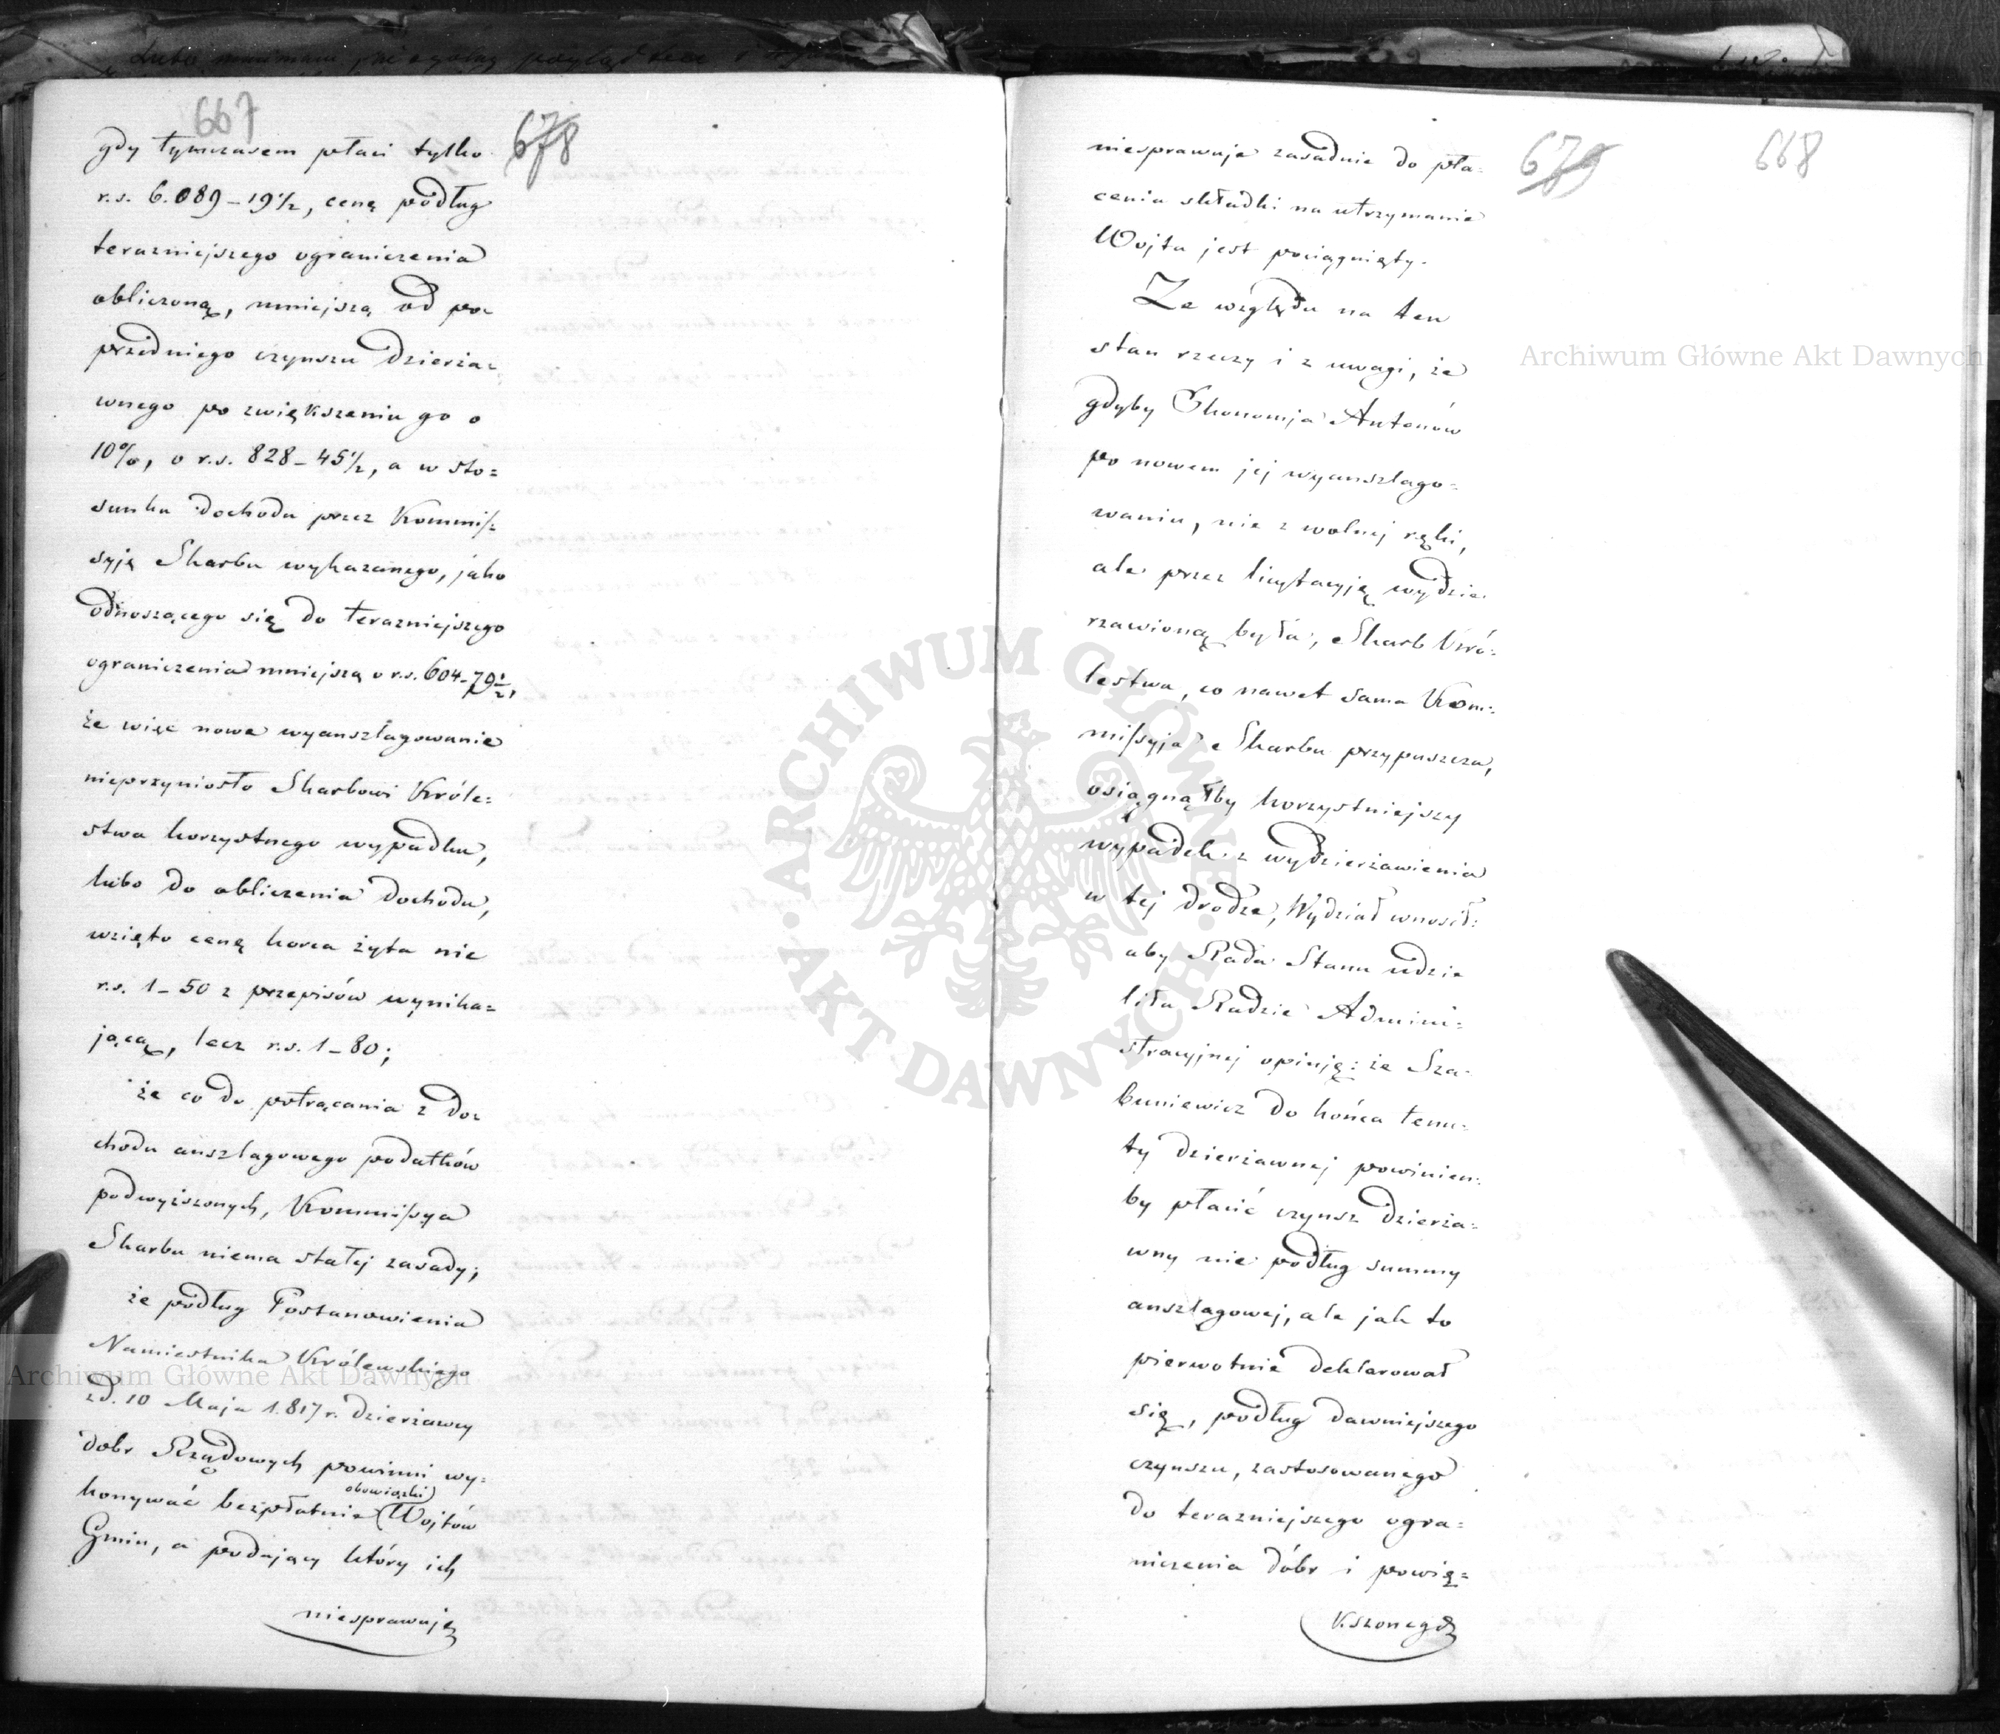 667
678
gdy tymczasem płaci tylko
r.s. 6.089-19½, cenę podług
teraźniejszego ograniczenia
obliczoną, mniejszą od po-
przedniego czynszu dzierża-
wnego po zwiększeniu go o
10%, o r.s. 828-45½, a w sto=
sunku dochodu przez Kommis-
syję Skarbu wykazanego, jako
odnoszącego się do teraźniejszego
ograniczenia mniejszą o r.s. 604-79½,
że więc nowe wyanszlagowanie
nieprzyniosło Skarbowi Króle=
stwa korzystnego wypadku,
lubo do obliczenia dochodu,
wzięto cenę korca żyta nie
r.s. 1-50 z przepisów wynika=
jącą, lecz r.s. 1-80;
że co do potrącania z do-
chodu anszlagowego podatków
podwyższonych, Kommissya
Skarbu niema stałej zasady;
że podług Postanowienia
Namiestnika Królewskiego
z d. 10 Maja 1.817 r. dzierżawcy
dóbr Rządowych powinni wy=
konywać bezpłatnie (obowiązki) Wojtów
Gmin, a podający który ich
niesprawuje
679
668
niesprawuje zasadnie do pła=
cenia składki na utrzymanie
Wojta jest pociągnięty.
Ze względu na ten
stan rzeczy i z uwagi, że
gdyby Ekonomija Antonów
po nowem jej wyanszlago=
waniu, nie z wolnej ręki,
ale przez licytacyję wydzier
rzawioną była, Skarb Kró=
lestwa, co nawet sama Kom=
missyja Skarbu przypuszcza,
osiągnąłby korzystniejszy
wypadek z wydzierżawienia
w tej drodze, Wydział wnosił:
aby Rada Stanu udzie
liła Radzie Admini=
stracyjnej opiniję: że Sza=
buniewicz do końca temu=
ty dzierżawnej powinien=
by płacić czynsz dzierża=
wny nie podług summy
anszlagowej, ale jak to
pierwotnie deklarował
się, podług dawniejszego
czynszu, zastosowanego
do teraźniejszego ogra=
niczenia dóbr i powię=
kszonego
ARCHIWUM GŁÓWNE AKT DAWNYCH
Archiwum Główne Akt Dawnych
Archiwum Główne Akt Dawnych